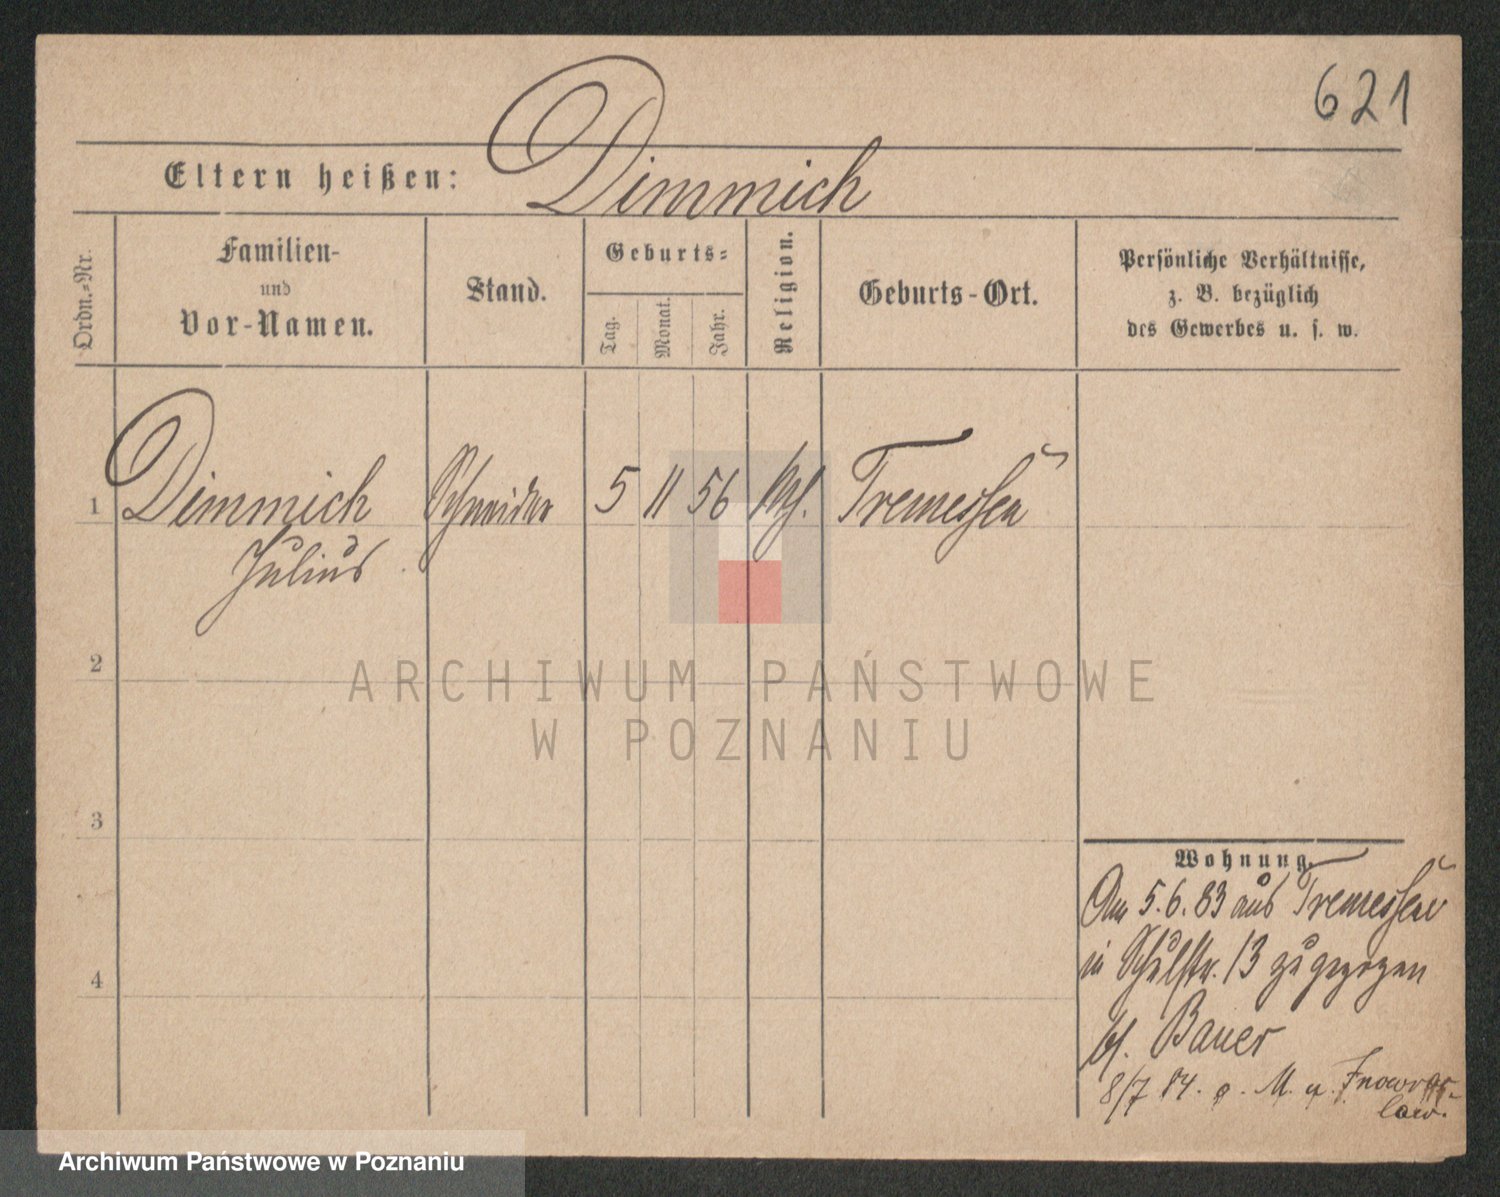 621
Eltern heißen: Dimmich
Ordn.-Nr.
Familien-
und
Vor-Namen.
Stand.
Geburts-
Tag.
Monat.
Jahr.
Religion.
Geburts-Ort.
Persönliche Verhältnisse,
z. B. bezüglich
des Gewerbes u. s. w.
1 Dimmich Schneider 5 11 56 Tremessen
Julius
2
3
4
ARCHIWUM PAŃSTWOWE
W POZNANIU
Wohnung.
Am 5.6.83 aus Tremessen
in Schulstr. 13 zugezogen
bf. Bauer
8/7 84. M. n. Inowraz-
law.
Archiwum Państwowe w Poznaniu